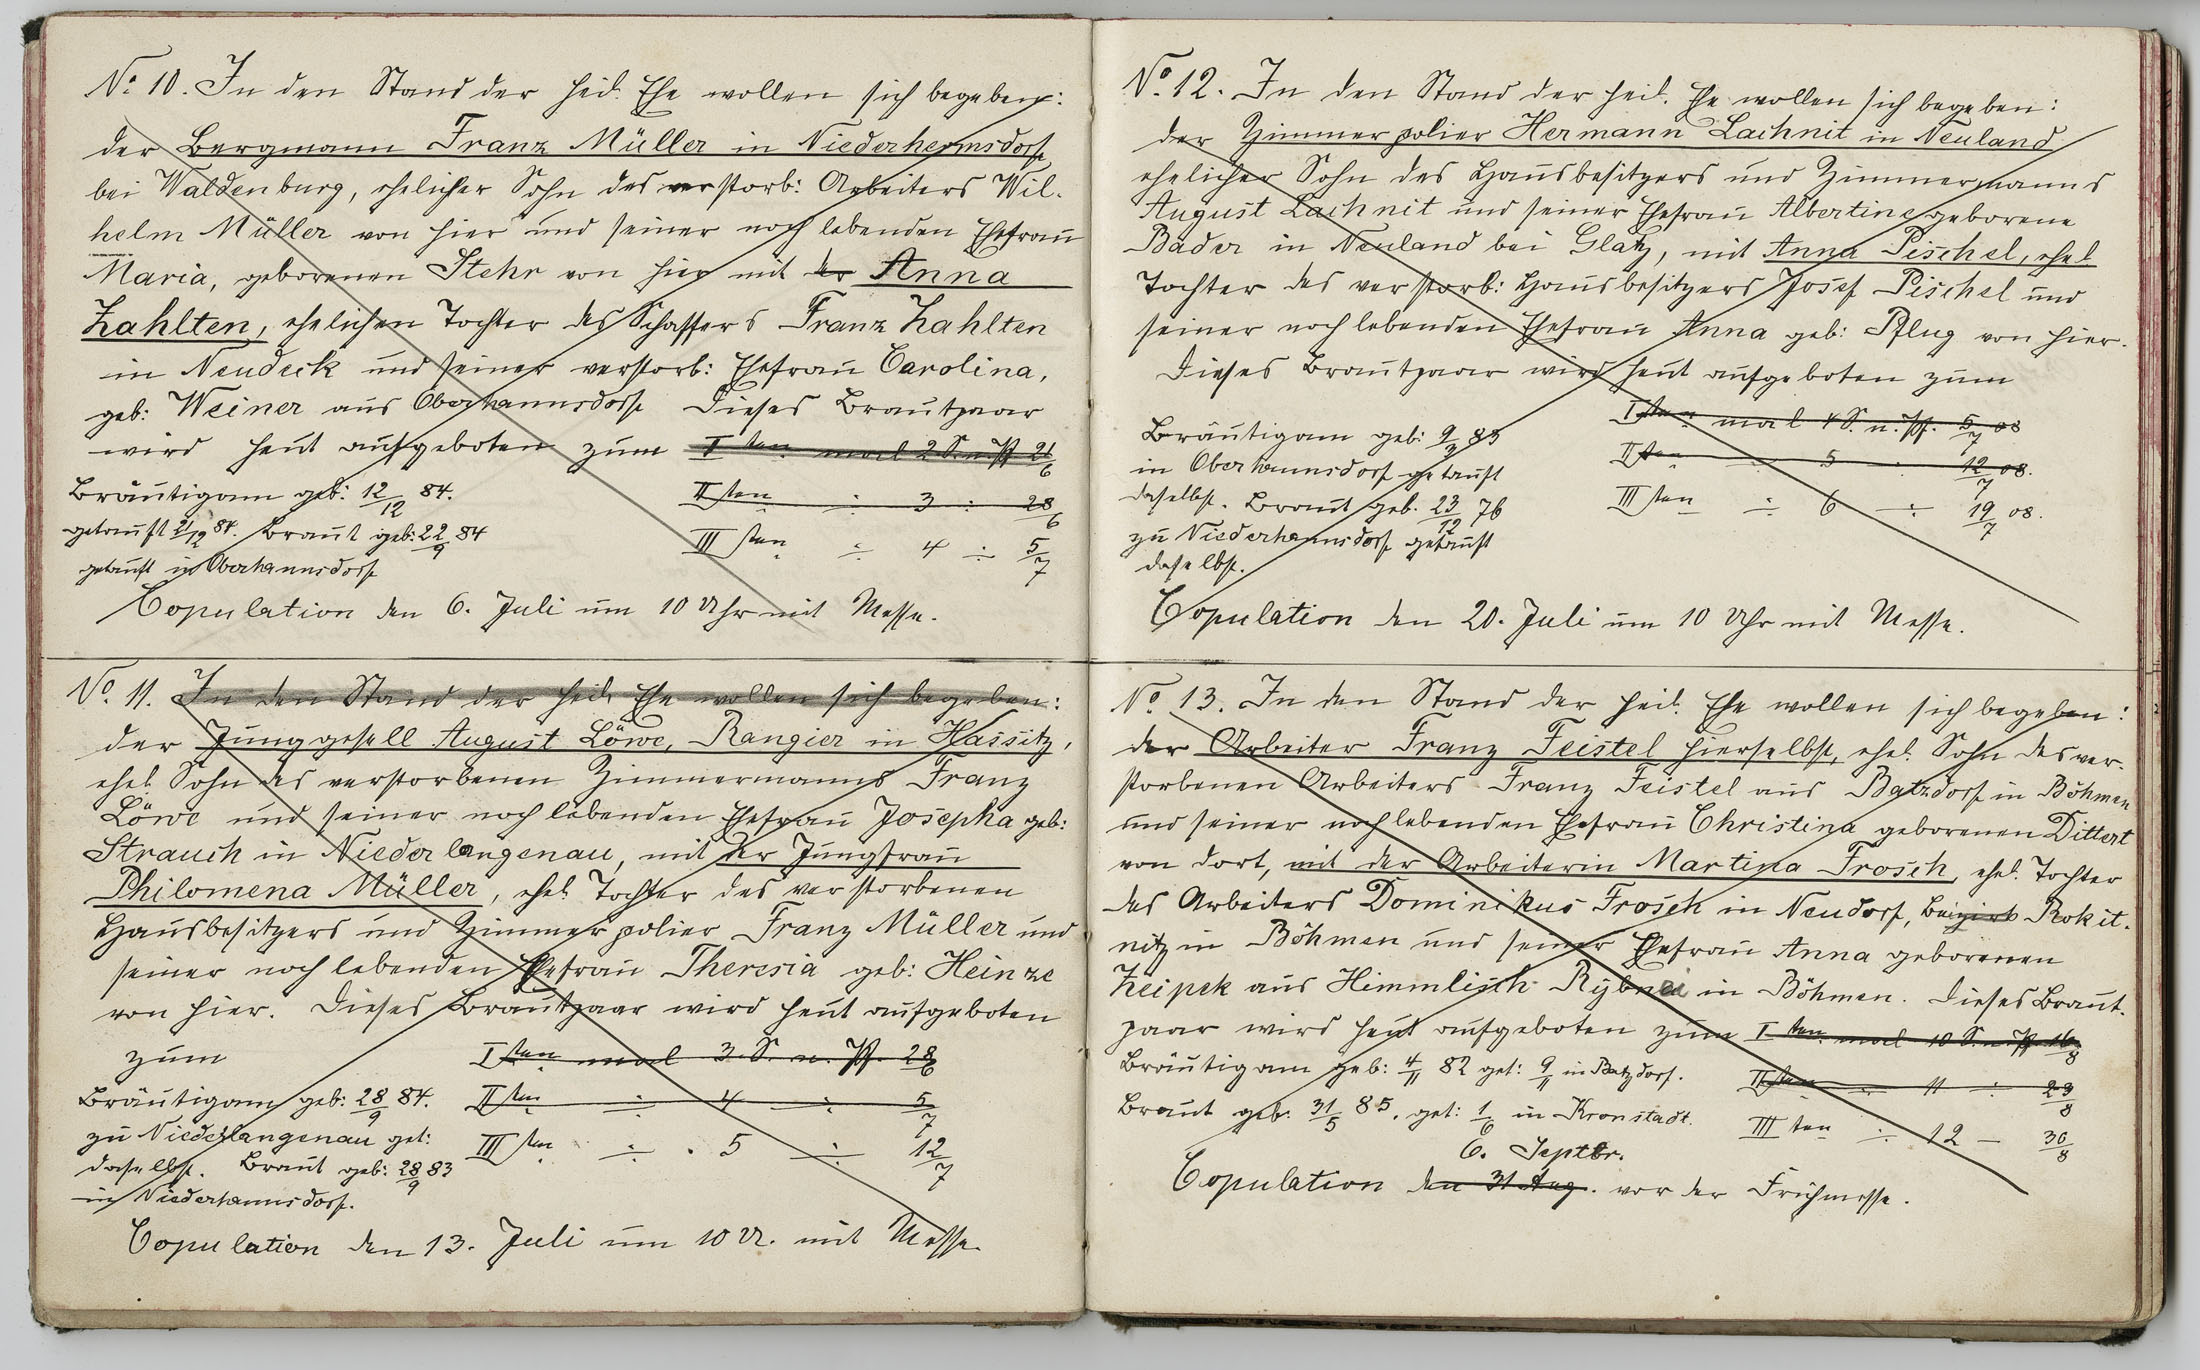 No. 10. In den Stand der heil. Ehe wollen sich begeben:
der Bergmann Franz Müller in Niederhermsdorf
bei Waldenburg, ehelicher Sohn des verstorb: Arbeiters Wil-
helm Müller von hier und seiner noch lebenden Ehefrau
Maria, geborenen Stehr von hier mit der Anna
Zahlten, ehelichen Tochter des Schaffers Franz Zahlten
in Neudeck und seiner verstorb: Ehefrau Carolina,
geb: Weiner aus Oberhannsdorf. Dieses Brautpaar
wird heut aufgeboten zum I ten mal 2 S. n. Pf. 21/6
Bräutigam geb: 12/12 84.
II ten ÷ 3 ÷ 28/6
getauft 21/12 84. Braut geb: 22/9 84
III ten ÷ 4 ÷ 5/7
getauft in Oberhannsdorf
Copulation den 6. Juli um 10 Uhr mit Messe.
No. 11. In den Stand der heil. Ehe wollen sich begeben:
der Junggesell August Löwe, Rangier in Hassitz,
ehel. Sohn des verstorbenen Zimmermanns Franz
Löwe und seiner noch lebenden Ehefrau Josepha geb:
Strauch in Niederlangenau, mit der Jungfrau
Philomena Müller, ehel. Tochter des verstorbenen
Hausbesitzers und Zimmerpolier Franz Müller und
seiner noch lebenden Ehefrau Theresia geb: Heinze
von hier. Dieses Brautpaar wird heut aufgeboten
zum I ten mal 3. S. n. Pf. 28/6
Bräutigam geb: 28/9 84.
II ten ÷ 4 ÷ 5/7
zu Niederlangenau get:
III ten ÷ 5 ÷ 12/7
daselbst. Braut geb: 28/9 83
in Niederhannsdorf.
Copulation den 13. Juli um 10 U. mit Messe.
No. 12. In den Stand der heil. Ehe wollen sich begeben:
der Zimmerpolier Hermann Lachnit in Neuland
ehelicher Sohn des Hausbesitzers und Zimmermanns
August Lachnit und seiner Ehefrau Albertine geborene
Bader in Neuland bei Glatz, mit Anna Pischel, ehel
Tochter des verstorb: Hausbesitzers Josef Pischel und
seiner noch lebenden Ehefrau Anna geb: Pflug von hier.
Dieses Brautpaar wird heut aufgeboten zum
I ten mal 4 S. n. Pf. 5/7 08
Bräutigam geb: 9/3 83
II ten ÷ 5 ÷ 12/7 08.
in Oberhannsdorf getauft
III ten ÷ 6 ÷ 19/7 08.
daselbst. Braut geb. 23/12 76
zu Niederhannsdorf getauft
daselbst.
Copulation den 20. Juli um 10 Uhr mit Messe.
No. 13. In den Stand der heil. Ehe wollen sich begeben:
der Arbeiter Franz Feistel hierselbst, ehel. Sohn des ver-
storbenen Arbeiters Franz Feistel aus Batzdorf in Böhmen
und seiner noch lebenden Ehefrau Christina geborenen Dittert
von dort, mit der Arbeiterin Martina Frosch, ehel. Tochter
des Arbeiters Dominikus Frosch in Neudorf, Bezirk Rokit-
nitz in Böhmen und seiner Ehefrau Anna geborenen
Zeipek aus Himmlisch Rybnei in Böhmen. Dieses Braut-
paar wird heut aufgeboten zum I ten mal 10 S. n. Pf. 16/8
Bräutigam geb: 4/11 82 get: 9/11 in Batzdorf.
II ten ÷ 11 ÷ 23/8
Braut geb: 31/5 85. get: 1/6 in Kronstadt.
III ten ÷ 12 — 30/8
6. Septbr.
Copulation den 31 Aug. vor der Frühmesse.